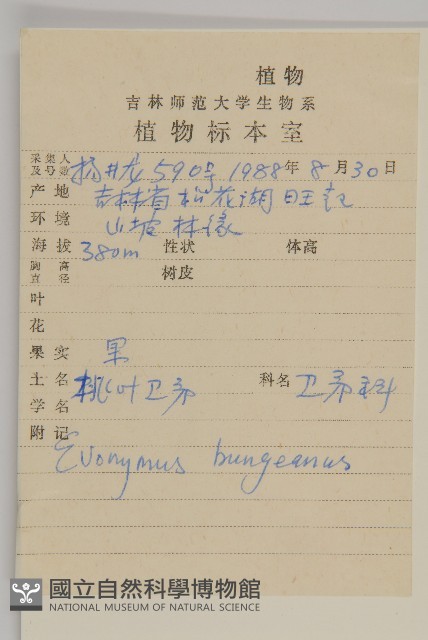 植物
吉林师范大学生物系
植物标本室
采集人及号数 杨井龙 590号 1988年 8月30日
产地 吉林省松花湖旺起
环境 山坡林缘
海拔 380m 性状 体高
胸高直径 树皮
叶
花
果实 果
土名 桃叶卫矛 科名 卫矛科
学名
附记
Evonymus bungeanus
國立自然科學博物館
NATIONAL MUSEUM OF NATURAL SCIENCE